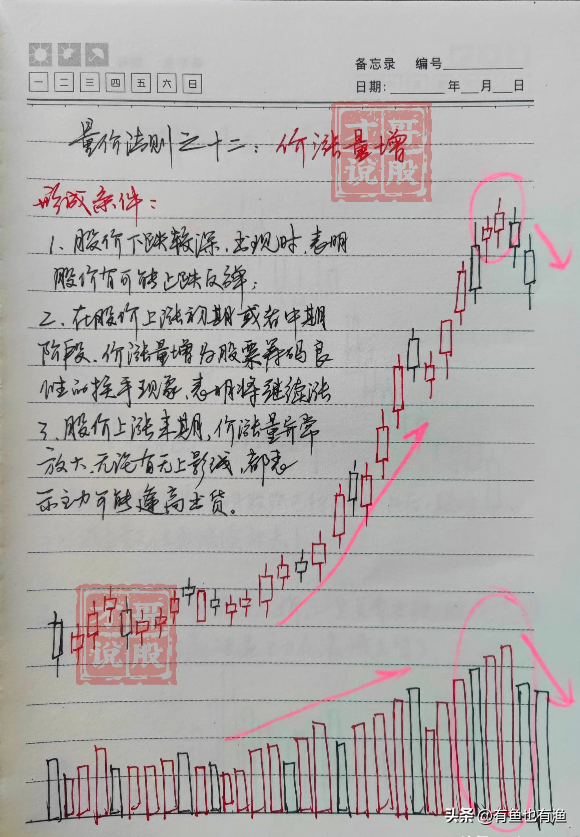 备忘录 编号
一 二 三 四 五 六 日
日期: 年 月 日
量价法则之十二:价涨量增
形成条件:
1、股价下跌较深,出现时,表明
股价有可能上跌反弹;
2、在股价上涨初期或者中期
阶段、价涨量增为股票筹码良
性的换手现象,表明将继续涨
3、股价上涨末期,价涨量异常
放大,无论有无上影线,都表
示主力可能逢高出货。
严股
才说
严股
才说
头条 @有鱼也有渔